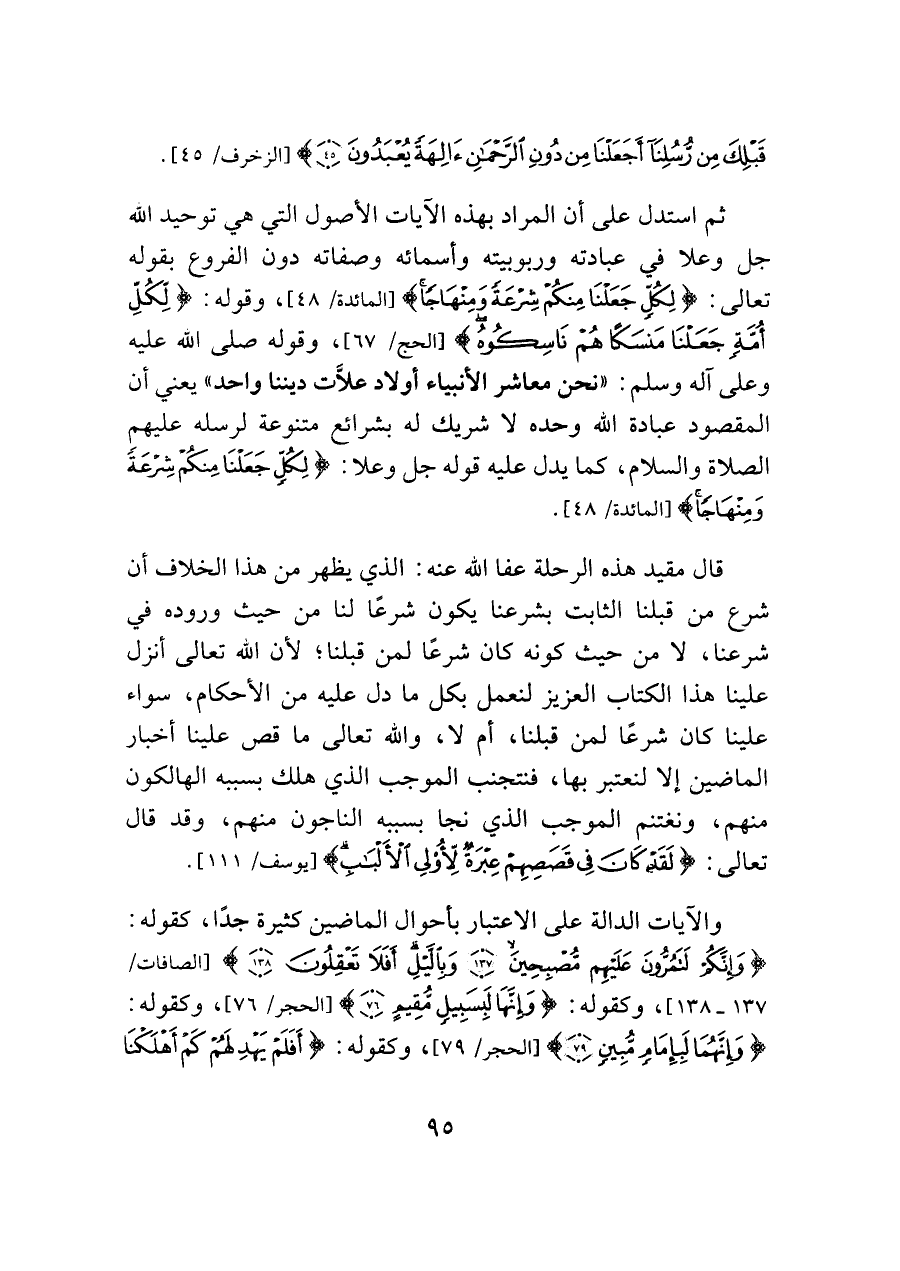 قَبْلِكَ مِن رُّسُلِنَآ أَجَعَلْنَا مِن دُونِ ٱلرَّحْمَٰنِ ءَالِهَةً يُعْبَدُونَ ﴿٤٥﴾ ﴾ [الزخرف/ ٤٥].
ثم استدل على أن المراد بهذه الآيات الأصول التي هي توحيد الله
جل وعلا في عبادته وربوبيته وأسمائه وصفاته دون الفروع بقوله
تعالى: ﴿ لِكُلٍّ جَعَلْنَا مِنكُمْ شِرْعَةً وَمِنْهَاجًا ﴾ [المائدة/ ٤٨]، وقوله: ﴿ لِّكُلِّ
أُمَّةٍ جَعَلْنَا مَنسَكًا هُمْ نَاسِكُوهُ ﴾ [الحج/ ٦٧]، وقوله صلى الله عليه
وعلى آله وسلم: «نحن معاشر الأنبياء أولاد علاَّت ديننا واحد» يعني أن
المقصود عبادة الله وحده لا شريك له بشرائع متنوعة لرسله عليهم
الصلاة والسلام، كما يدل عليه قوله جل وعلا: ﴿ لِكُلٍّ جَعَلْنَا مِنكُمْ شِرْعَةً
وَمِنْهَاجًا ﴾ [المائدة/ ٤٨].
قال مقيد هذه الرحلة عفا الله عنه: الذي يظهر من هذا الخلاف أن
شرع من قبلنا الثابت بشرعنا يكون شرعًا لنا من حيث وروده في
شرعنا، لا من حيث كونه كان شرعًا لمن قبلنا؛ لأن الله تعالى أنزل
علينا هذا الكتاب العزيز لنعمل بكل ما دل عليه من الأحكام، سواء
علينا كان شرعًا لمن قبلنا، أم لا، والله تعالى ما قص علينا أخبار
الماضين إلا لنعتبر بها، فنتجنب الموجب الذي هلك بسببه الهالكون
منهم، ونغتنم الموجب الذي نجا بسببه الناجون منهم، وقد قال
تعالى: ﴿ لَقَدْ كَانَ فِى قَصَصِهِمْ عِبْرَةٌ لِّأُو۟لِى ٱلْأَلْبَٰبِ ﴾ [يوسف/ ١١١].
والآيات الدالة على الاعتبار بأحوال الماضين كثيرة جدًا، كقوله:
﴿ وَإِنَّكُمْ لَتَمُرُّونَ عَلَيْهِم مُّصْبِحِينَ ﴿١٣٧﴾ وَبِٱلَّيْلِ أَفَلَا تَعْقِلُونَ ﴿١٣٨﴾ ﴾ [الصافات/
١٣٧ ـ ١٣٨]، وكقوله: ﴿ وَإِنَّهَا لَبِسَبِيلٍ مُّقِيمٍ ﴿٧٦﴾ ﴾ [الحجر/ ٧٦]، وكقوله:
﴿ وَإِنَّهُمَا لَبِإِمَامٍ مُّبِينٍ ﴿٧٩﴾ ﴾ [الحجر/ ٧٩]، وكقوله: ﴿ أَفَلَمْ يَهْدِ لَهُمْ كَمْ أَهْلَكْنَا
٩٥